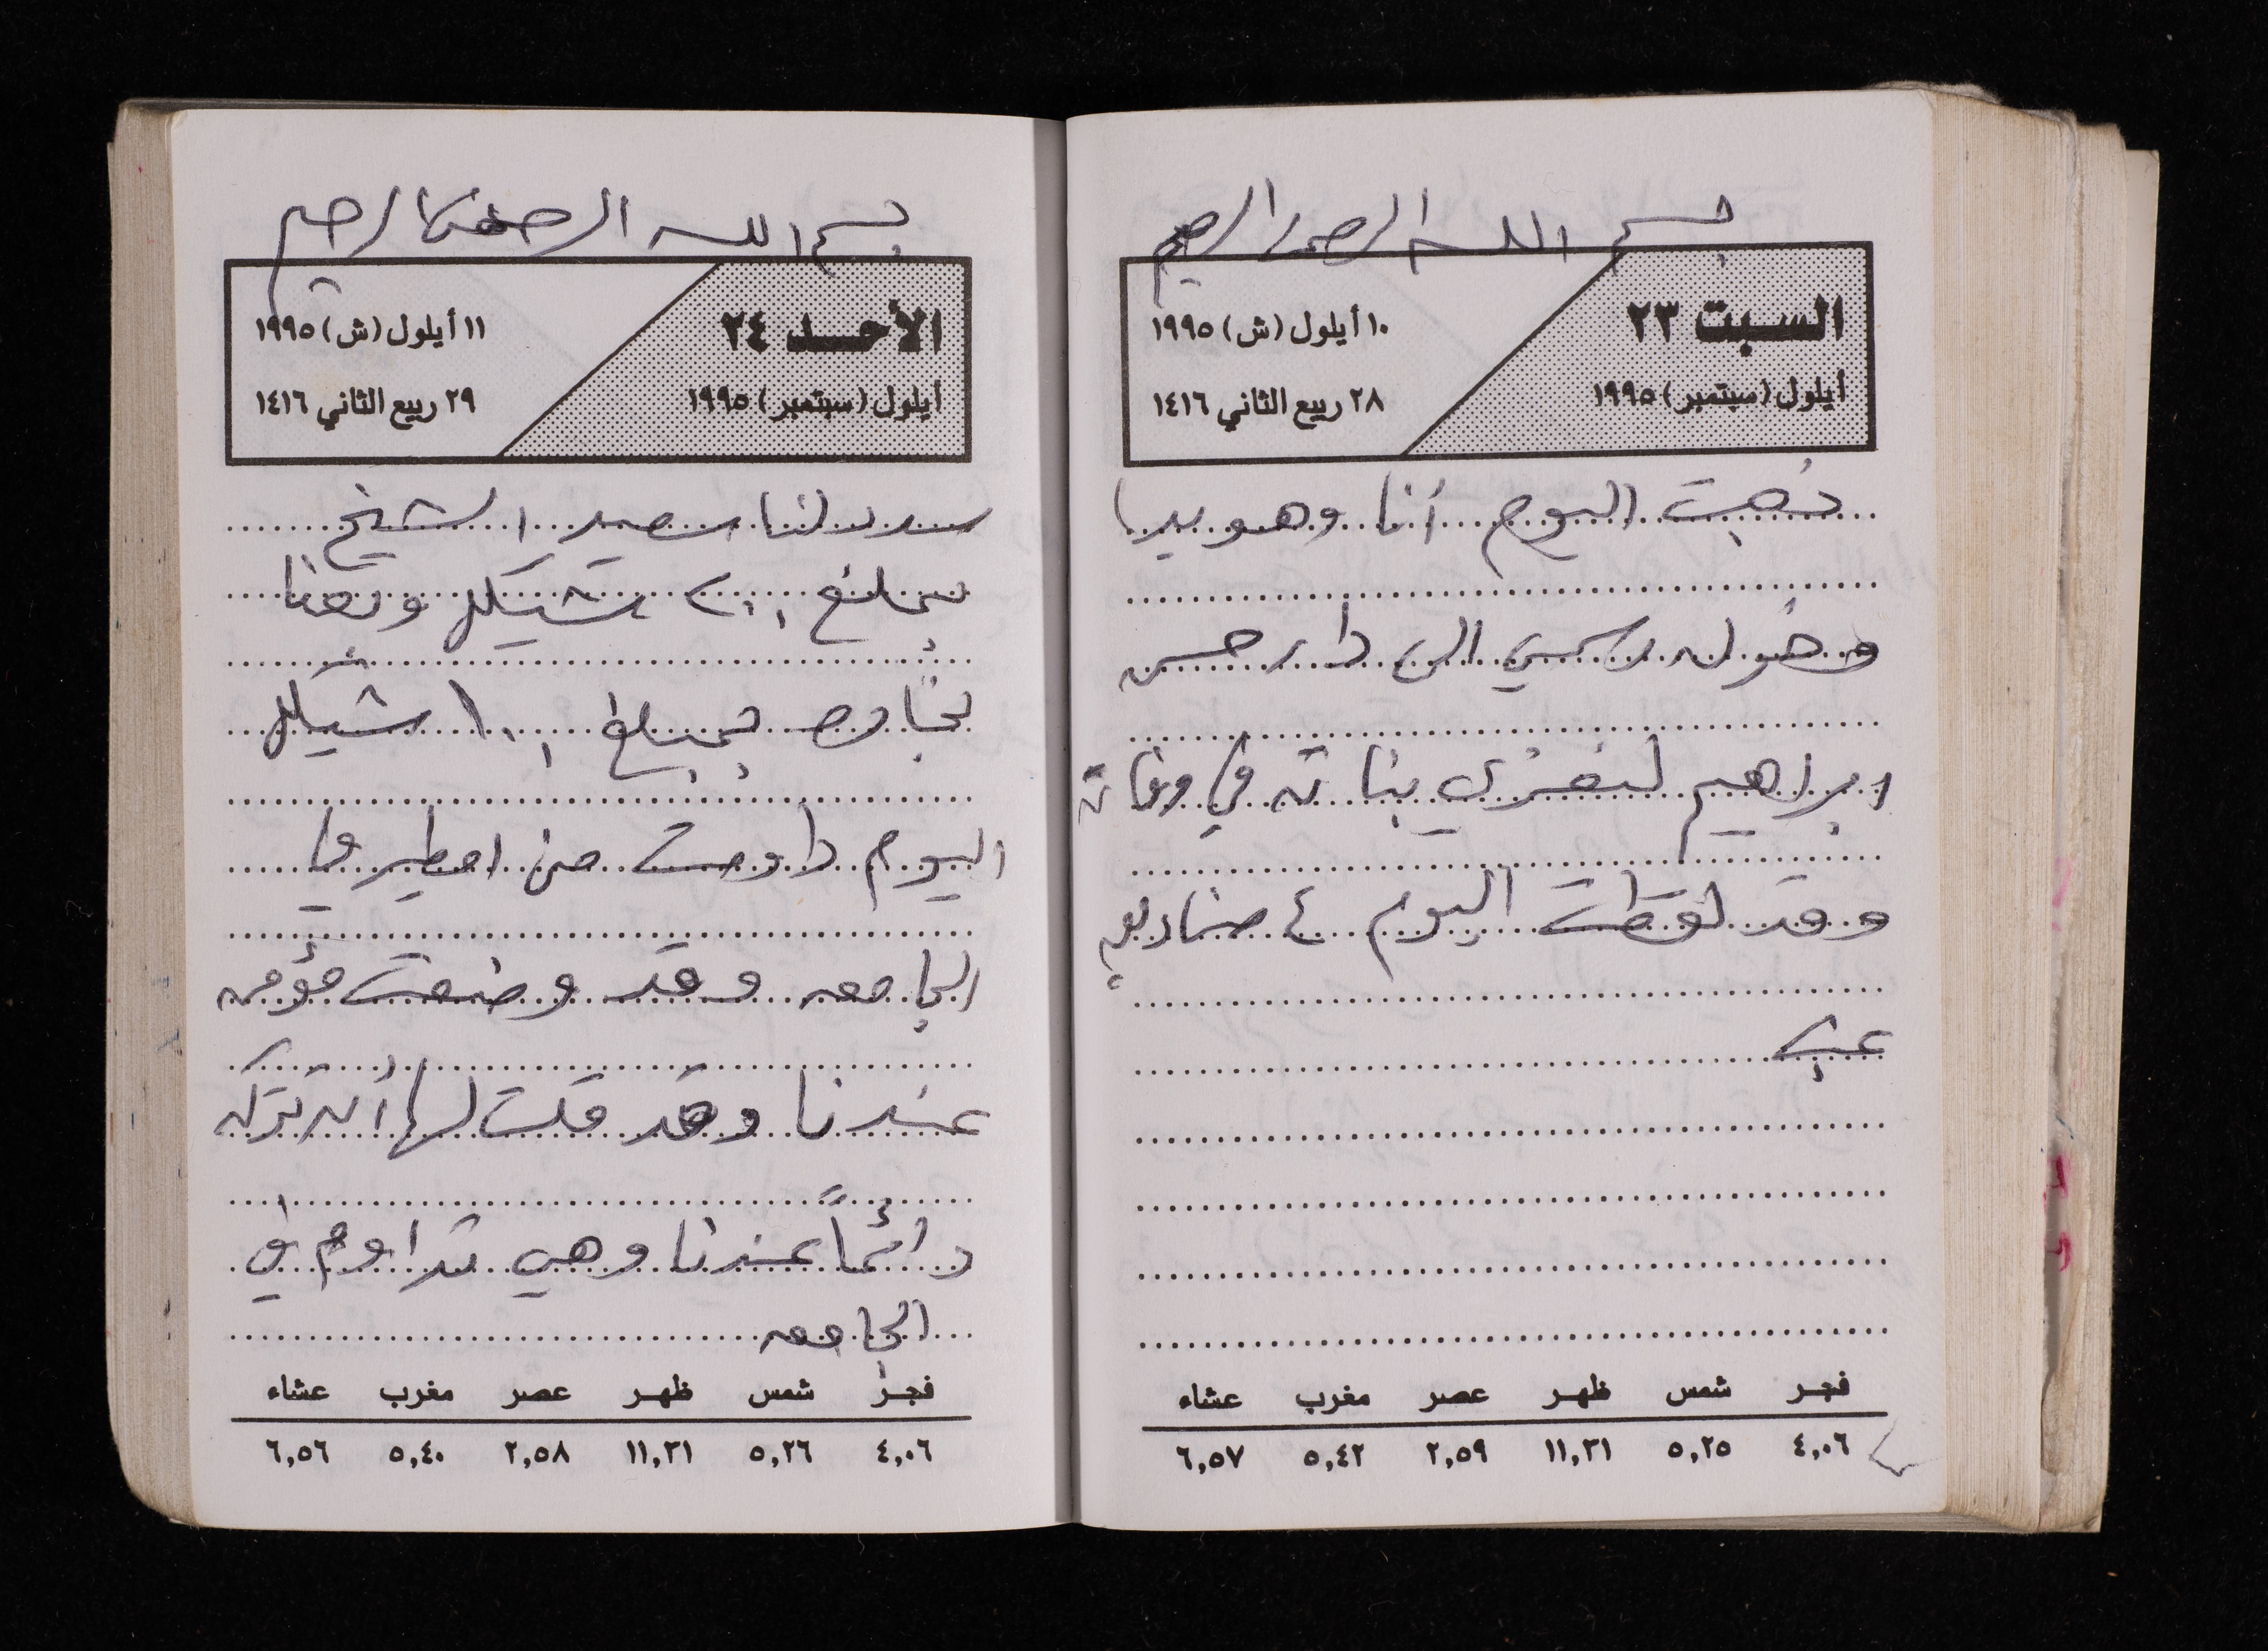 بسم الله الرحمن الرحيم
السبت ٢٣
أيلول (سبتمبر) ١٩٩٥
١٠ أيلول (ش) ١٩٩٥
٢٨ ربيع الثاني ١٤١٦
ذهبت اليوم أنا وهويدا
وخوله رسمي الى دار حسن
ابراهيم لنعزي بناته في وفاته
وقد لقطت اليوم ٤ صناديق
عنب
فجر شمس ظهر عصر مغرب عشاء
٤,٠٦ ٥,٢٥ ١١,٣١ ٢,٥٩ ٥,٤٢ ٦,٥٧
بسم الله الرحمن الرحيم
الأحد ٢٤
أيلول (سبتمبر) ١٩٩٥
١١ أيلول (ش) ١٩٩٥
٢٩ ربيع الثاني ١٤١٦
سدد لنا سعيد الشيخ
بمبلغ ٢٠٠ شيكل وبعنا
بمبلغ ١٠٠ شيكل
اليوم داومت من في
الجامعه وقد وضعت مؤمن
عندنا وقد قلت لها أن تتركه
دائماً عندنا وهي تداوم في
الجامعه
فجر شمس ظهر عصر مغرب عشاء
٤,٠٦ ٥,٢٦ ١١,٣١ ٢,٥٨ ٥,٤٠ ٦,٥٦